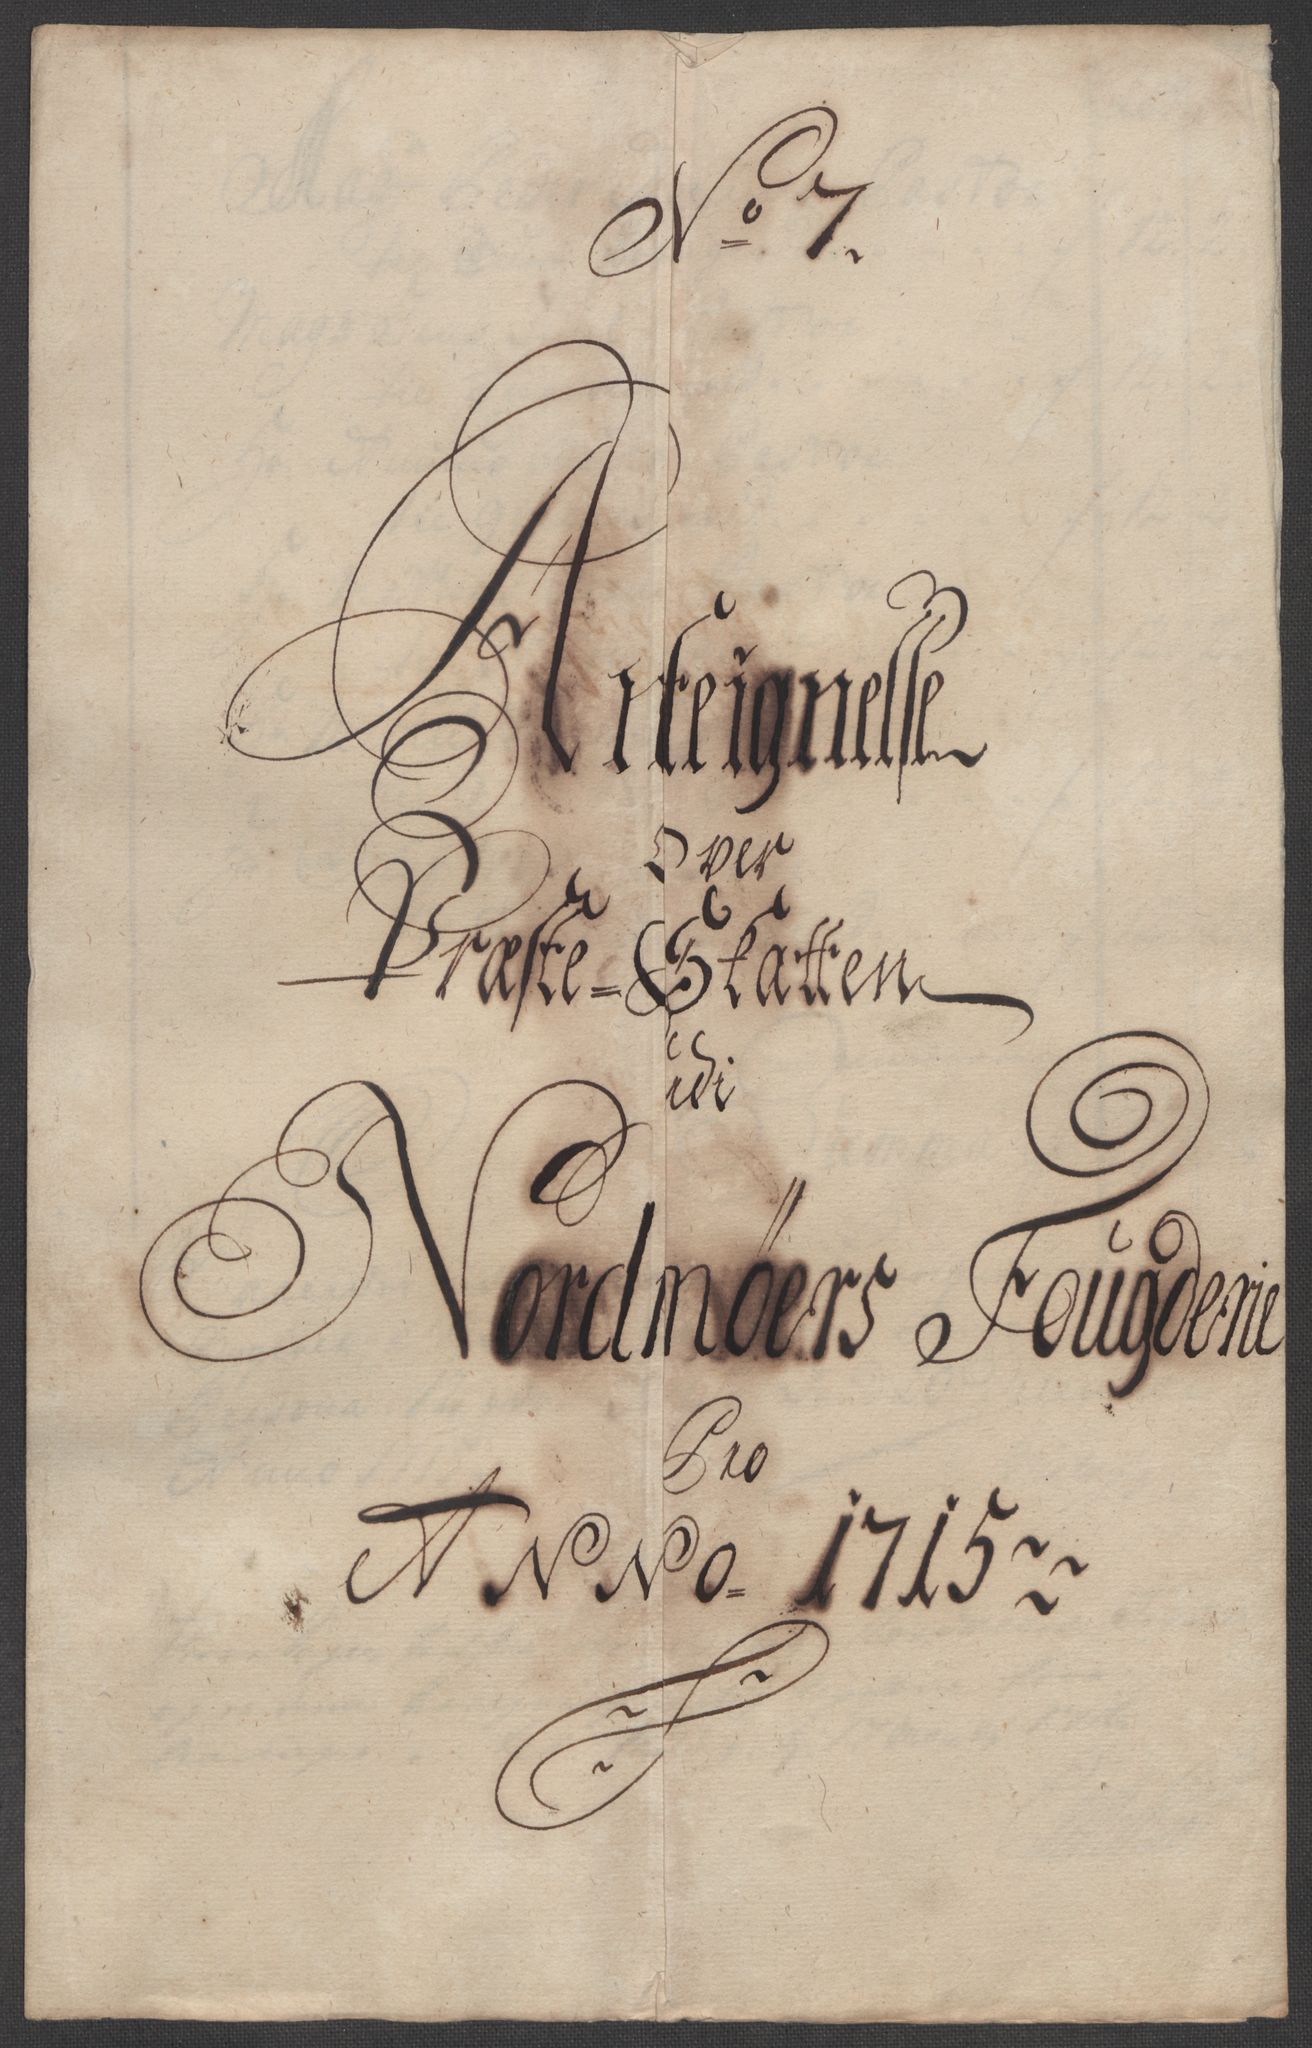 No 7.
Anteignelse
over
Præste=Skatten
udi
Nordmöers Fougderie
Pro
ANNo= 1715